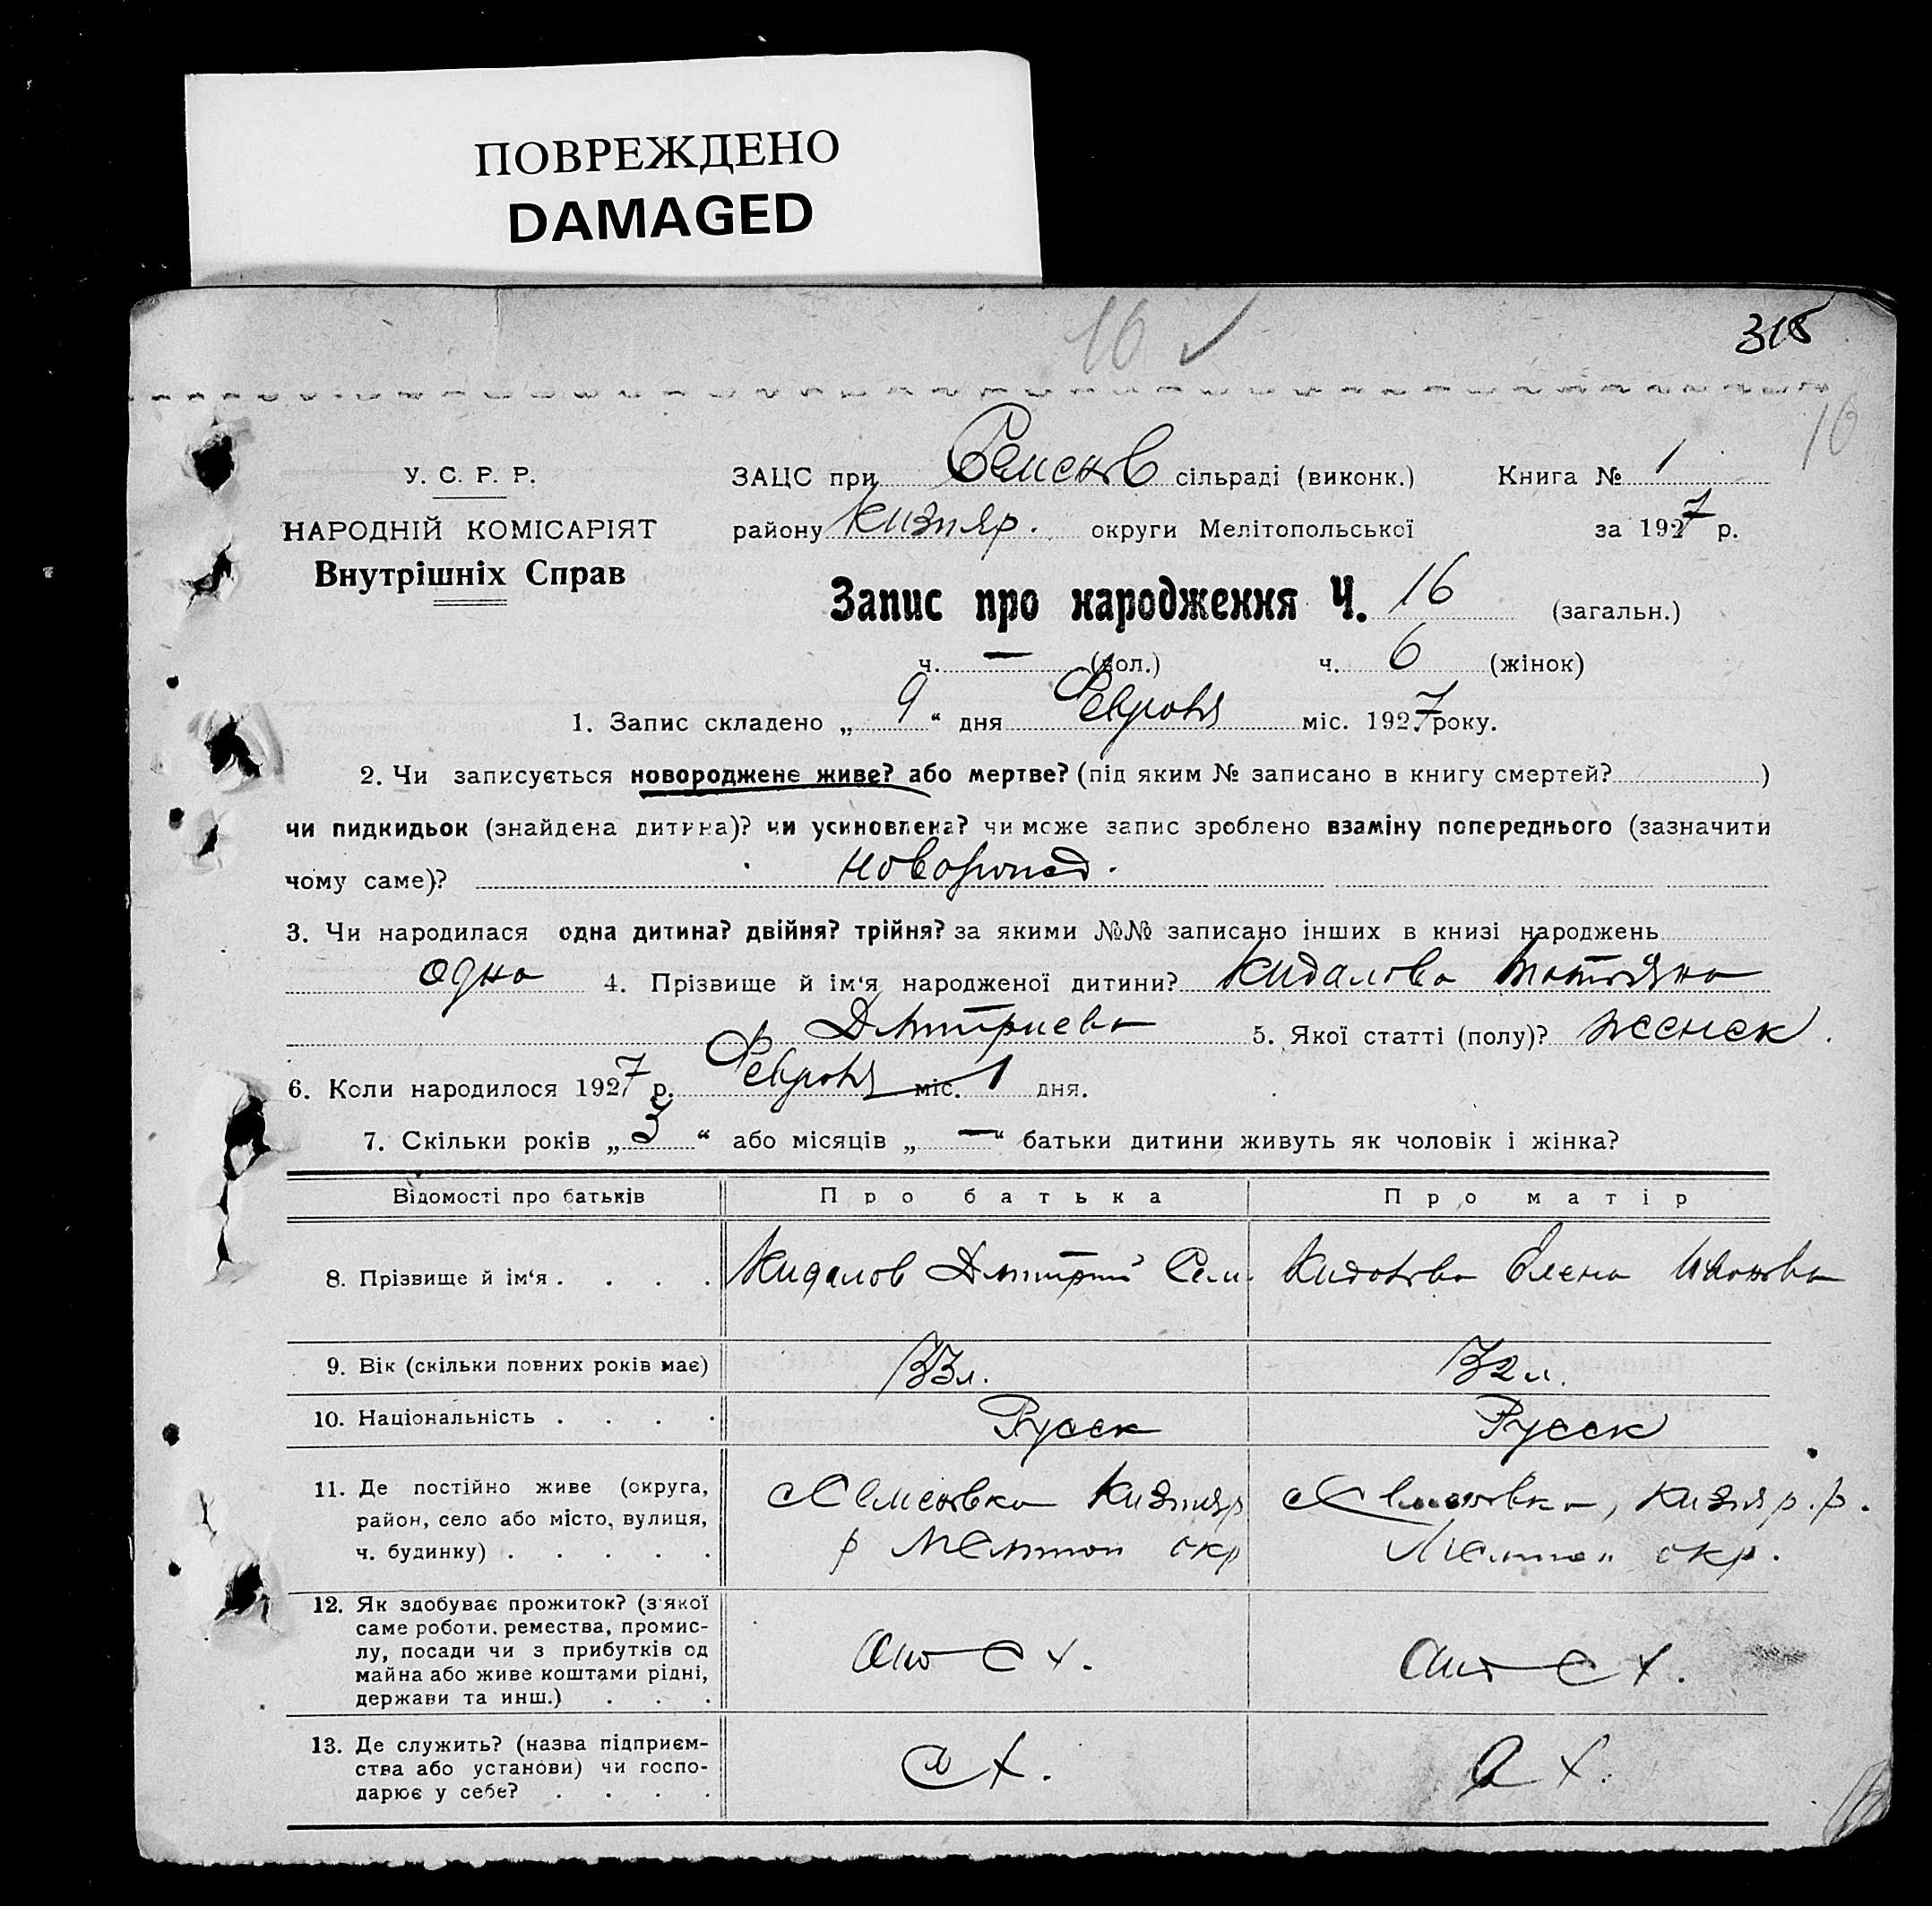 ПОВРЕЖДЕНО
DAMAGED
16 ✓
315
16
У. С. Р. Р.
НАРОДНІЙ КОМІСАРІЯТ
Внутрішніх Справ
ЗАЦС при Семенов сільраді (виконк.) Книга № 1
району Кизияр. округи Мелітопольської за 1927 р.
Запис про народження Ч. 16 (загальн.)
ч. — (чол.) ч. 6 (жінок)
1. Запис складено „ 9 “ дня Февроля міс. 1927 року.
2. Чи записується новороджене живе? або мертве? (під яким № записано в книгу смертей? )
чи пидкидьок (знайдена дитина)? чи усиновлена? чи може запис зроблено взаміну попереднього (зазначити
чому саме)? новорожд.
3. Чи народилася одна дитина? двійня? трійня? за якими №№ записано інших в книзі народжень
одна 4. Прізвище й ім‘я народженої дитини? Кидалова Татьяна
Дмитриева 5. Якої статті (полу)? женск.
6. Коли народилося 1927 р. Февроля міс. 1 дня.
7. Скільки років „ 3 “ або місяців „ — “ батьки дитини живуть як чоловік і жінка?
Відомості про батьків Про батька Про матір
8. Прізвище й ім‘я . . . . Кидалов Дмитрий Сем. Кидалова Елена Иванова
9. Вік (скільки повних років має) 33 л. 32 л.
10. Національність . . . . Русск Русск
11. Де постійно живе (округа,
район, село або місто, вулиця,
ч. будинку) . . . . .
с Семеновка Кизияр
р Мелитоп окр
с Семеновка, Кизияр. р.
Мелитоп окр.
12. Як здобуває прожиток? (з'якої
саме роботи, ремества, промис-
лу, посади чи з прибутків од
майна або живе коштами рідні,
держави та инш.) . . .
с х.
с х.
13. Де служить? (назва підприєм-
ства або установи) чи госпо-
дарює у себе? . . . .
с х.
с х.
16